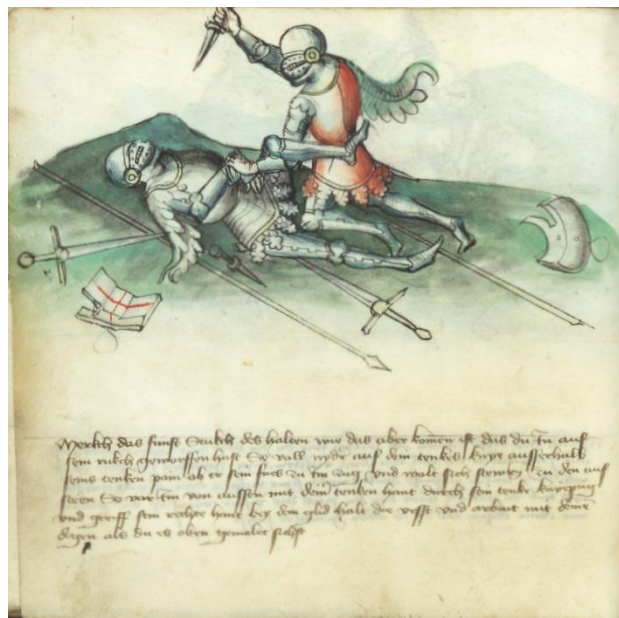 Merkch das funft Stukch des halten wie das aber komen ist das du in auf
sein rukch geworffen hast So vall nyder auf dein tenkes knye ausserhalb
seins tenken pain ob er sein fues zu im zug und wolt sich
So var im von aussen mit deiner tenken hant durch sein tenke
und greiff sein rechte hant bey dem glid halt die vest und arbait mit deine
degen als du es oben gemalet sichst